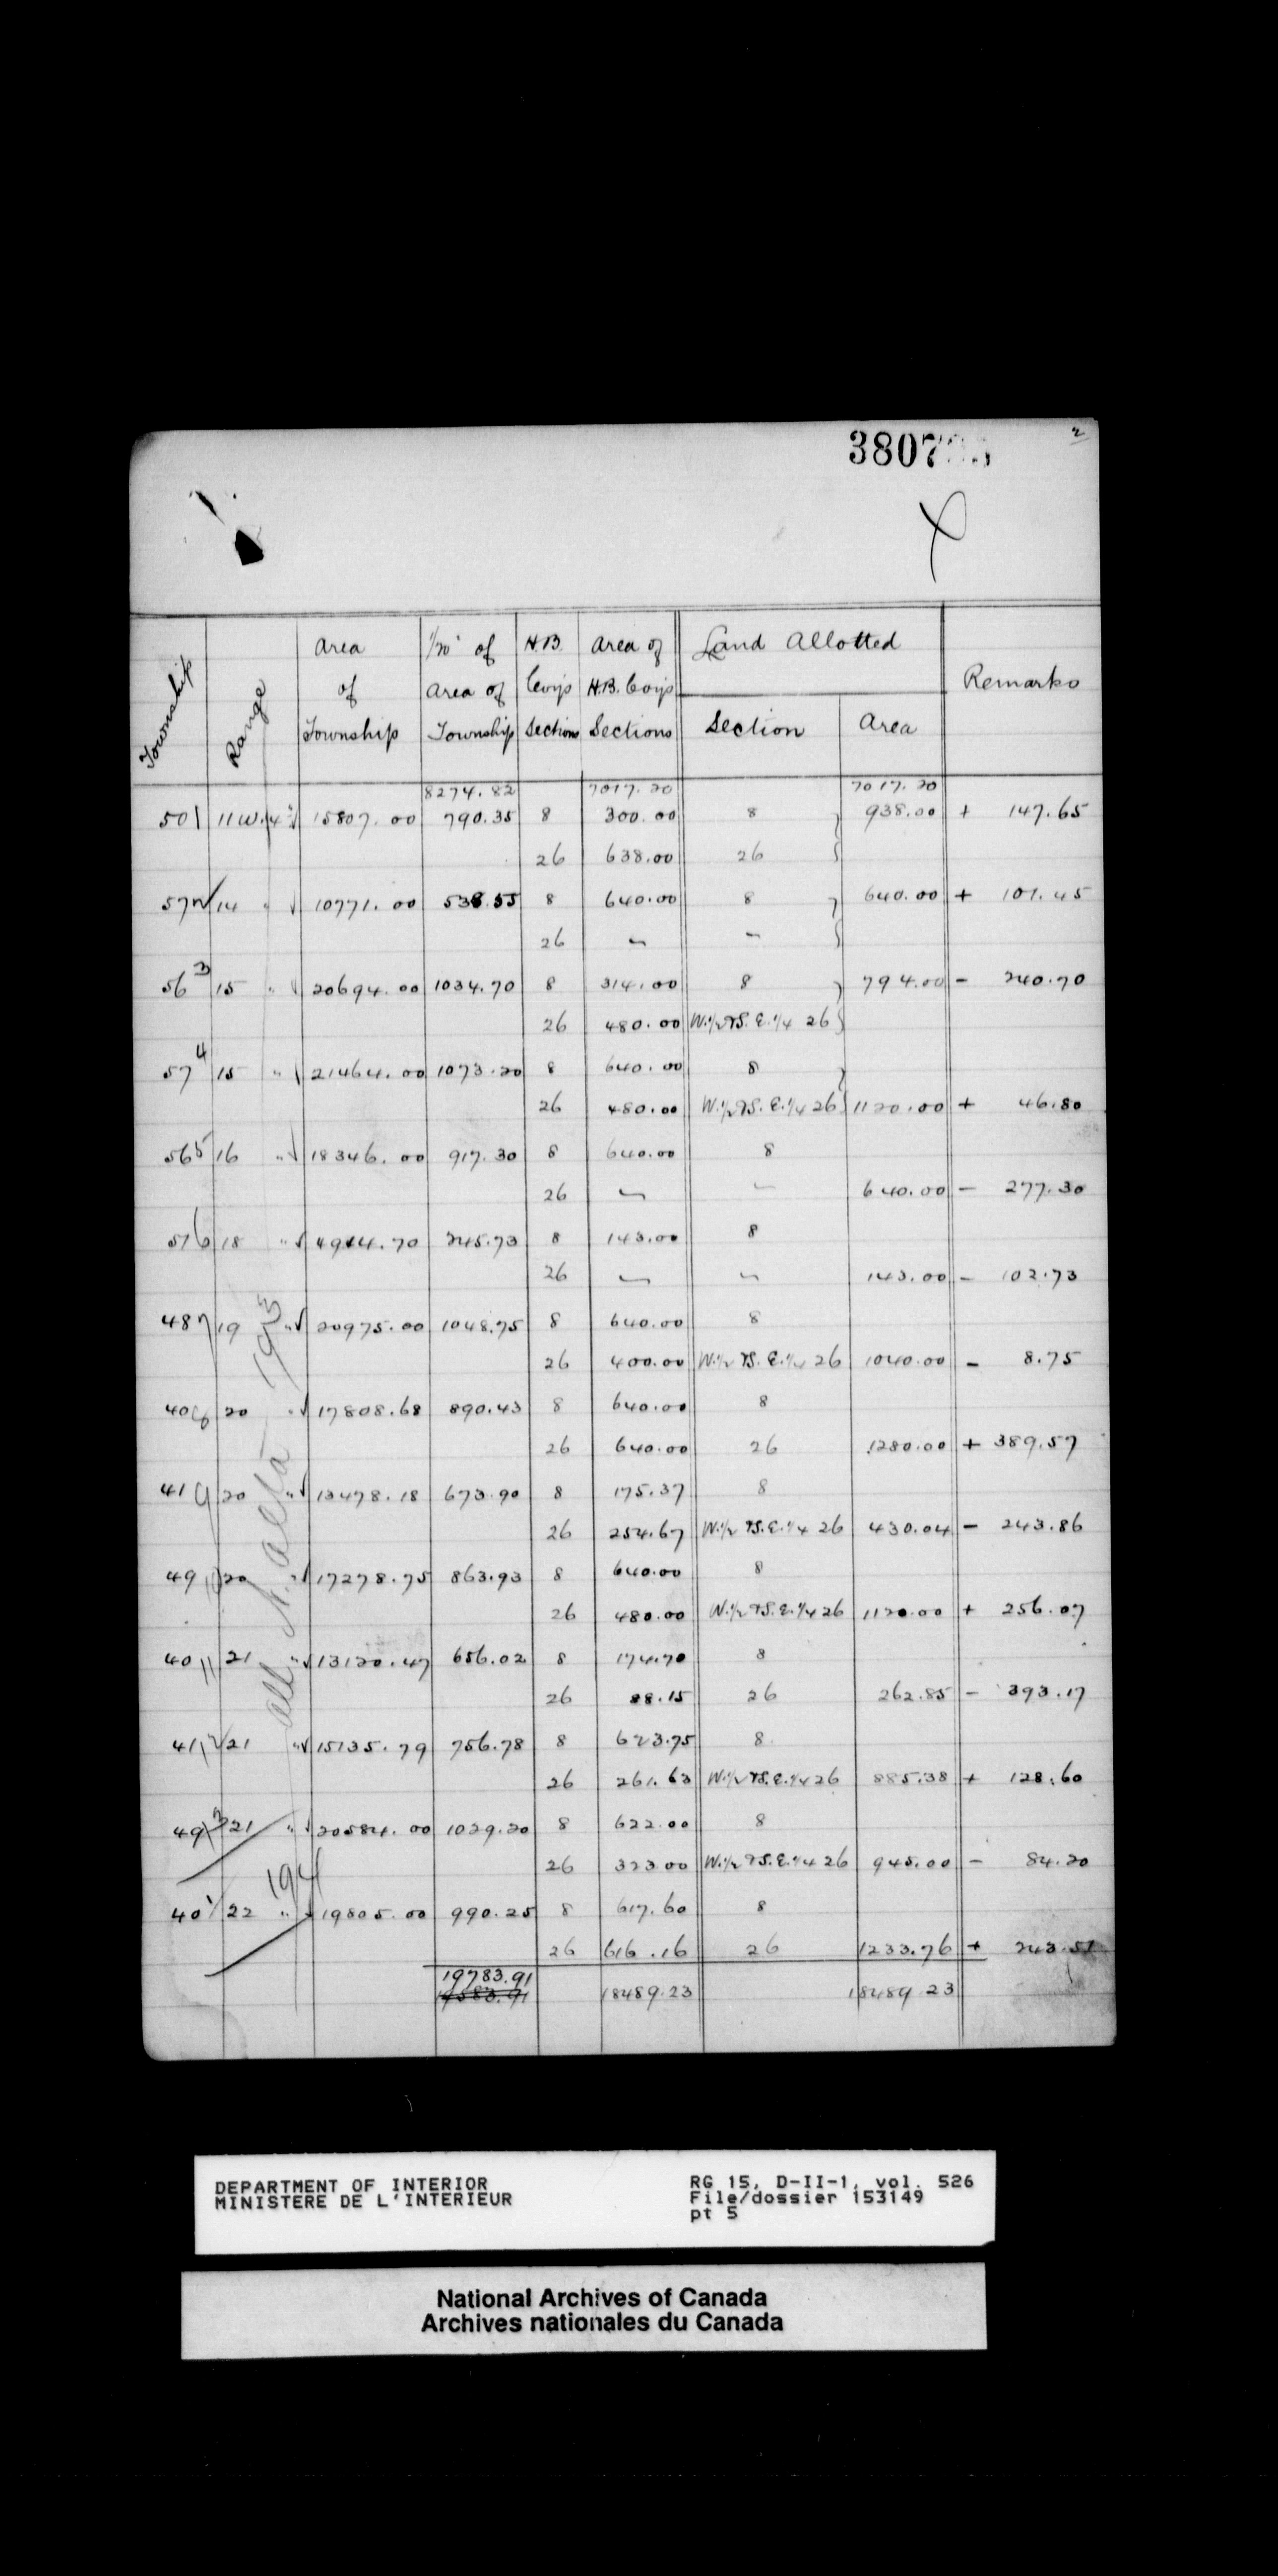 2
3807
Township Range Area of Township 1/20 of Area of Township H.B. Coy's Sections Area of H.B. Coy's Sections Land Allotted Section Area Remarks
8274.82 7017.20 7017.20
50 1 11 W. 4 15807.00 790.35 8 300.00 8 938.00 + 147.65
26 638.00 26
57 2 14 " 10771.00 538.55 8 640.00 8 640.00 + 101.45
26 - -
56 3 15 " 20694.00 1034.70 8 314.00 8 794.00 - 240.70
26 480.00 W.1/2 & S.E.1/4 26
57 4 15 " 21464.00 1073.20 8 640.00 8
26 480.00 W.1/2 & S.E.1/4 26 1120.00 + 46.80
56 5 16 " 18346.00 917.30 8 640.00 8
26 - - 640.00 - 277.30
51 6 18 " 4914.70 245.73 8 143.00 8
26 - - 143.00 - 102.73
48 7 19 " 20975.00 1048.75 8 640.00 8
26 400.00 W.1/2 & S.E.1/4 26 1040.00 - 8.75
40 8 20 " 17808.68 890.43 8 640.00 8
26 640.00 26 1280.00 + 389.57
41 9 20 " 13478.18 673.90 8 175.37 8
26 254.67 W.1/2 & S.E.1/4 26 430.04 - 243.86
49 10 20 " 17278.75 863.93 8 640.00 8
26 480.00 W.1/2 & S.E.1/4 26 1120.00 + 256.07
40 11 21 " 13120.47 656.02 8 174.70 8
26 88.15 26 262.85 - 393.17
41 12 21 " 15135.79 756.78 8 623.75 8
26 261.63 W.1/2 & S.E.1/4 26 885.38 + 128.60
49 13 21 " 20584.00 1029.20 8 622.00 8
26 323.00 W.1/2 & S.E.1/4 26 945.00 - 84.20
40 1 22 " 19805.00 990.25 8 617.60 8
26 616.16 26 1233.76 + 243.51
19783.91
19583.91 18489.23 18489.23
all N. Alta
194
DEPARTMENT OF INTERIOR
MINISTERE DE L'INTERIEUR
RG 15, D-II-1, vol. 526
File/dossier 153149
pt 5
National Archives of Canada
Archives nationales du Canada